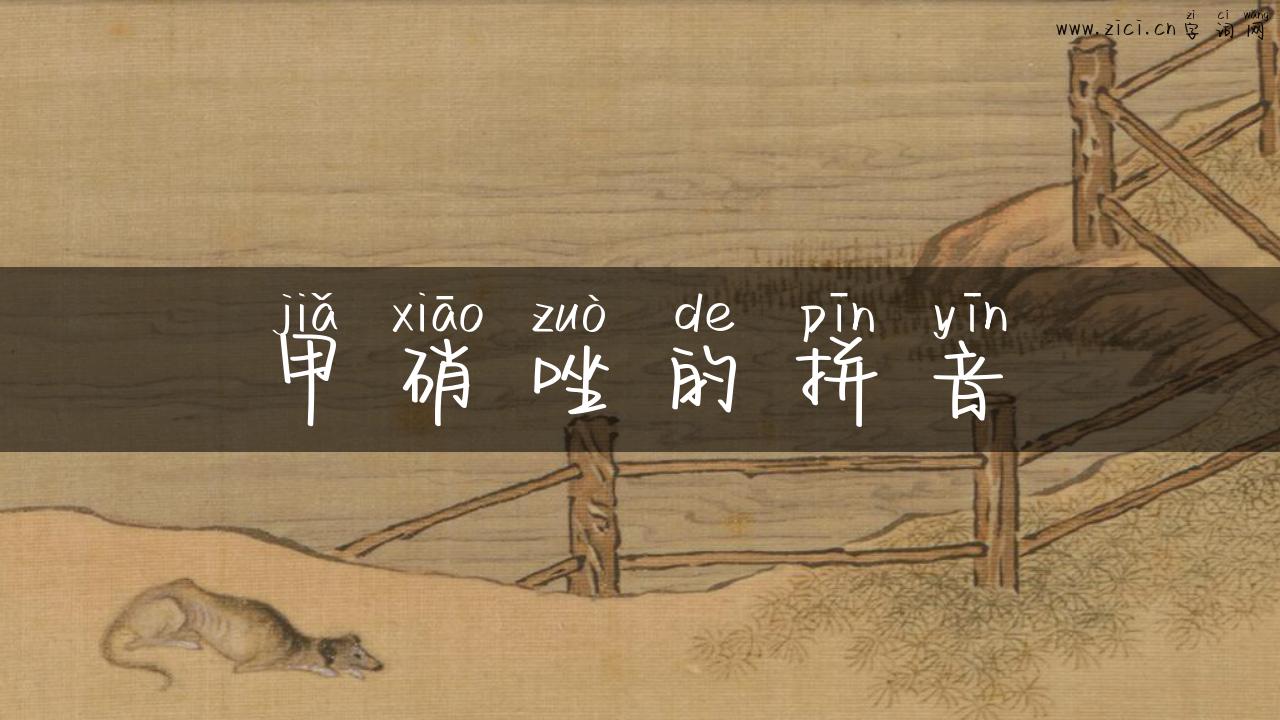 zì cí wǎng
www.zici.cn 字词网
jiǎ xiāo zuò de pīn yīn
甲硝唑的拼音